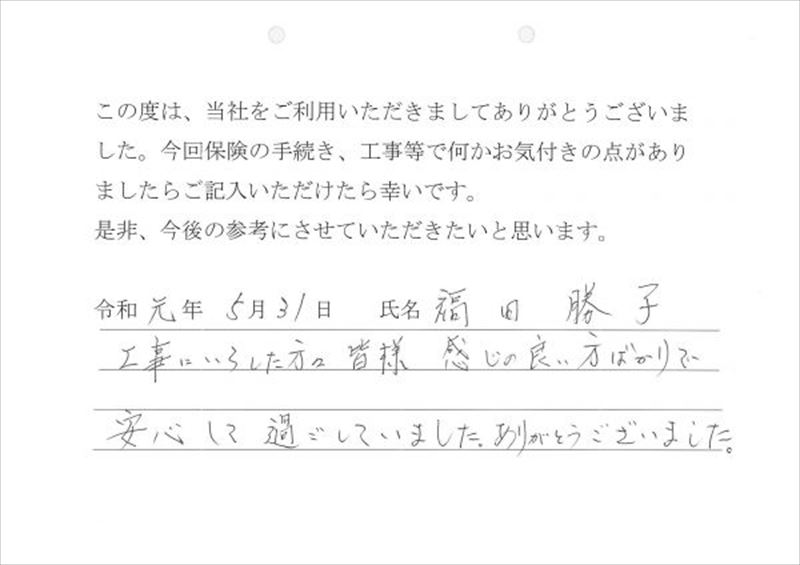 この度は、当社をご利用いただきましてありがとうございま
した。今回保険の手続き、工事等で何かお気付きの点があり
ましたらご記入いただけたら幸いです。
是非、今後の参考にさせていただきたいと思います。
令和 元 年 5月31日 氏名 福田 勝子
工事にいらした方々 皆様 感じの良い方ばかりで
安心して過ごしていました。ありがとうございました。